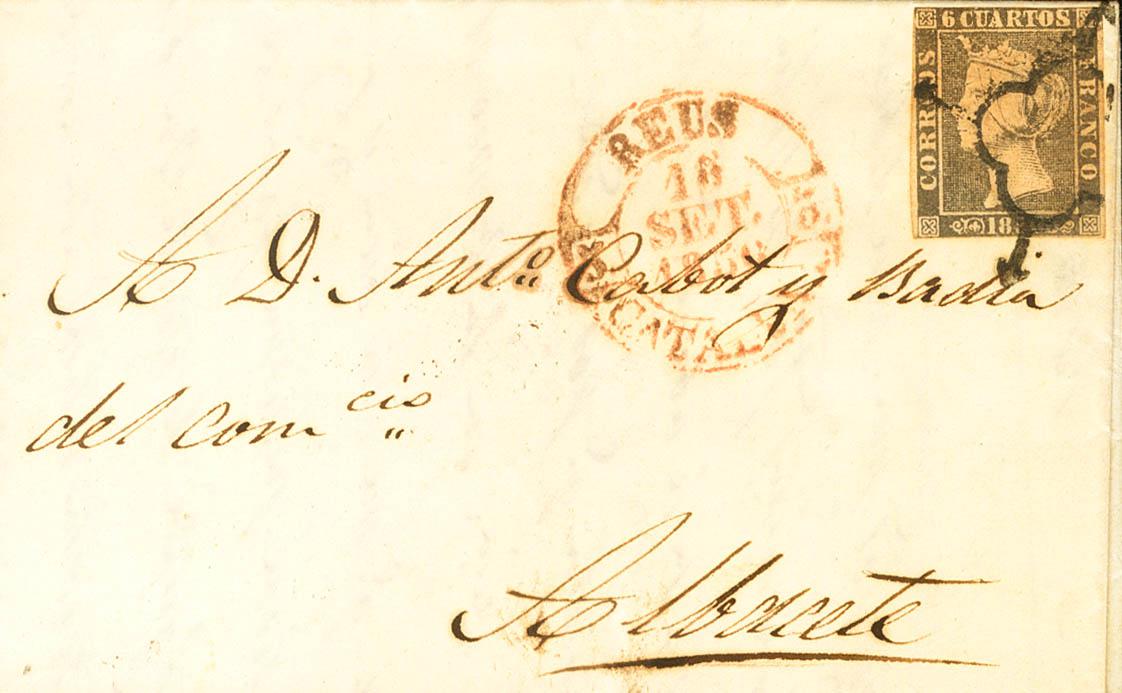 6 CUARTOS
CORREOS
FRANCO
REUS
18
SET.
1850
CATAL
A D. Antº. Cabot y Badia
del comcio
Albacete